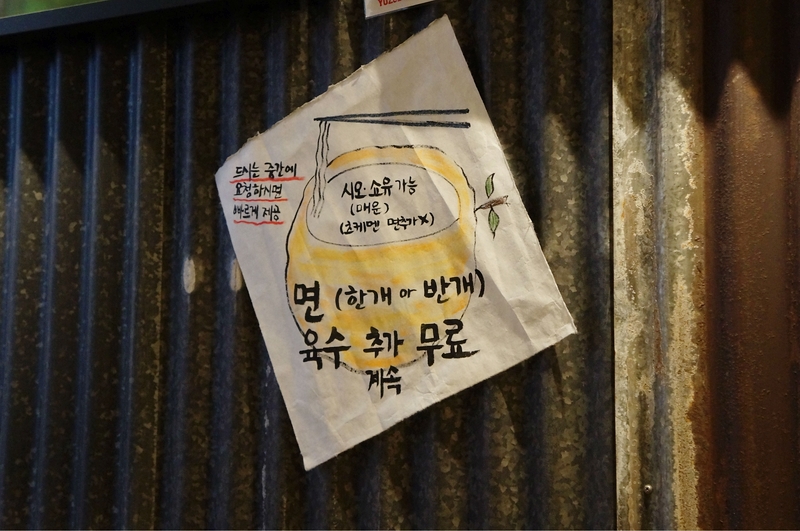 드시는 중간에
요청하시면
빠르게 제공
시오·소유 가능
(매운)
(츠케멘 면추가X)
면 (한개 or 반개)
육수 추가 무료
계속